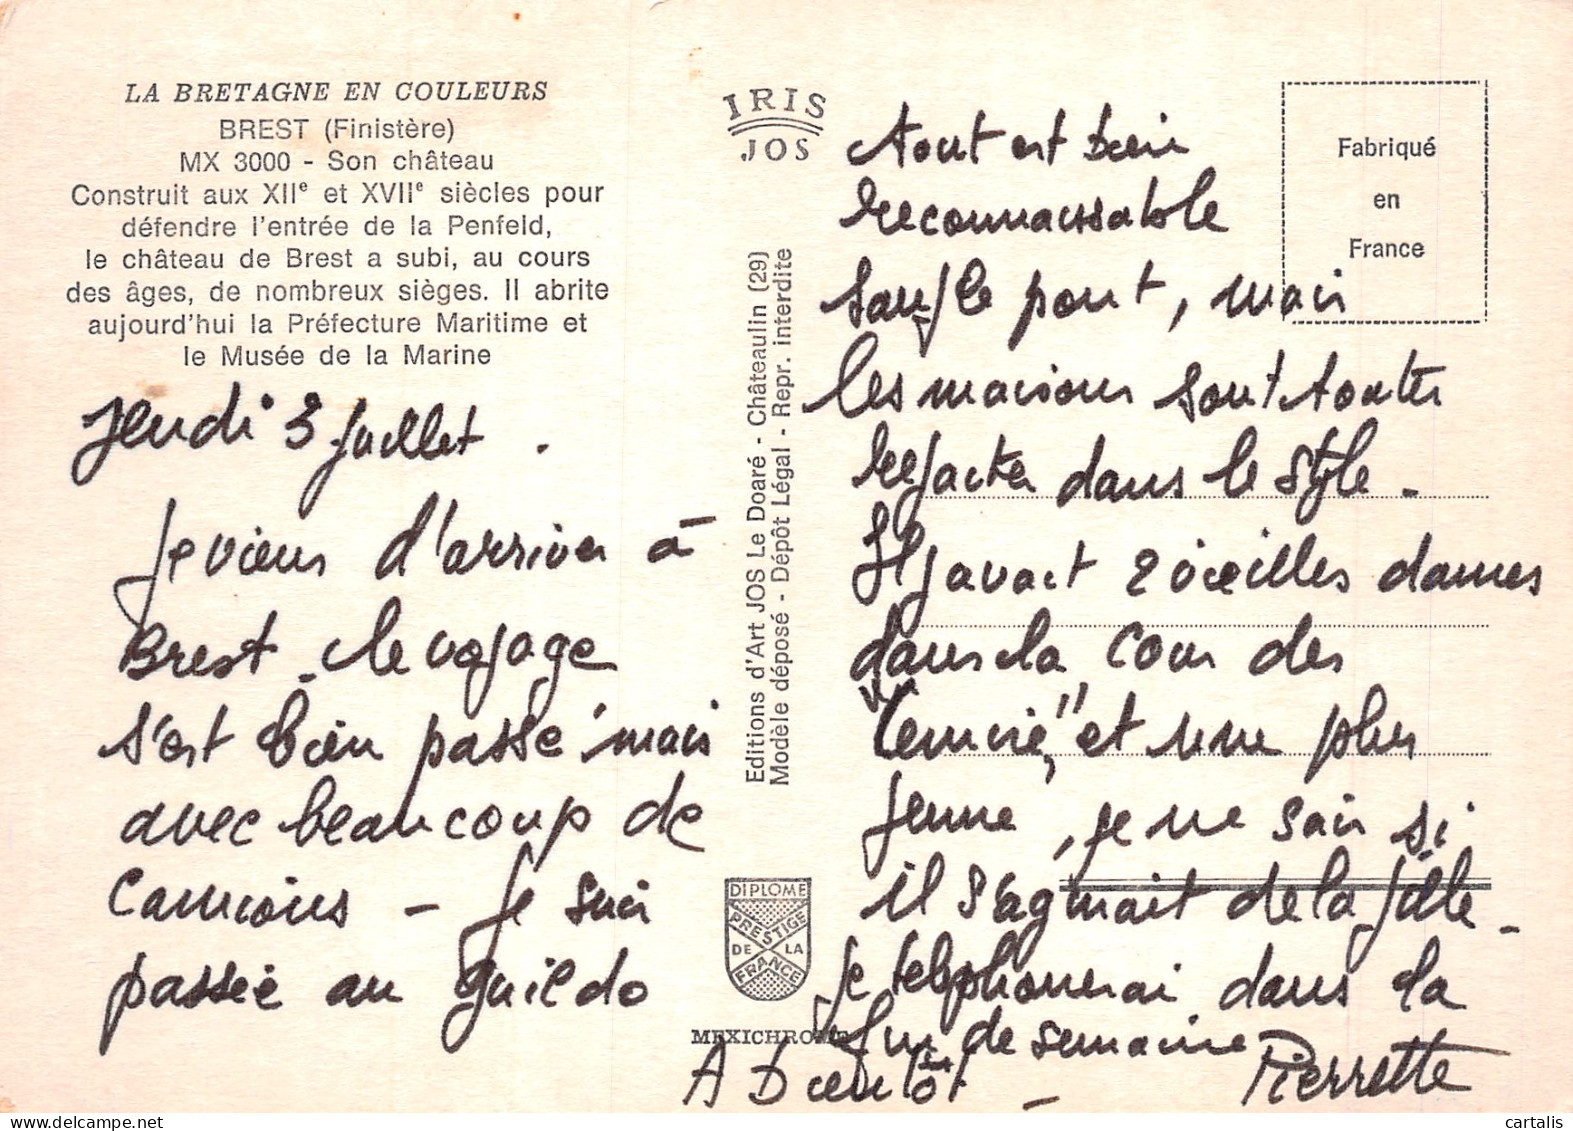 LA BRETAGNE EN COULEURS
BREST (Finistère)
MX 3000 - Son château
Construit aux XIIe et XVIIe siècles pour
défendre l'entrée de la Penfeld,
le château de Brest a subi, au cours
des âges, de nombreux sièges. Il abrite
aujourd'hui la Préfecture Maritime et
le Musée de la Marine
Jeudi 3 Juillet .
Je viens d'arriver à
Brest - le voyage
s'est bien passé mais
avec beaucoup de
Camions - Je suis
passée au Guildo
IRIS
JOS
Editions d'Art JOS Le Doaré - Châteaulin (29)
Modèle déposé - Dépôt Légal - Repr. interdite
DIPLOME
PRESTIGE
DE LA
FRANCE
MEXICHROME
Fabriqué
en
France
tout est bien
reconnaissable
sauf le pont, mais
les maisons sont toutes
refaites dans le style -
Il y avait 2 vieilles dames
dans la cour des
et une plus
jeune, je ne sais si
il s'agissait de la fille -
Je telephonerai dans la
fin de semaine
A Bientôt - Pierrette
cartalis delcampe.net